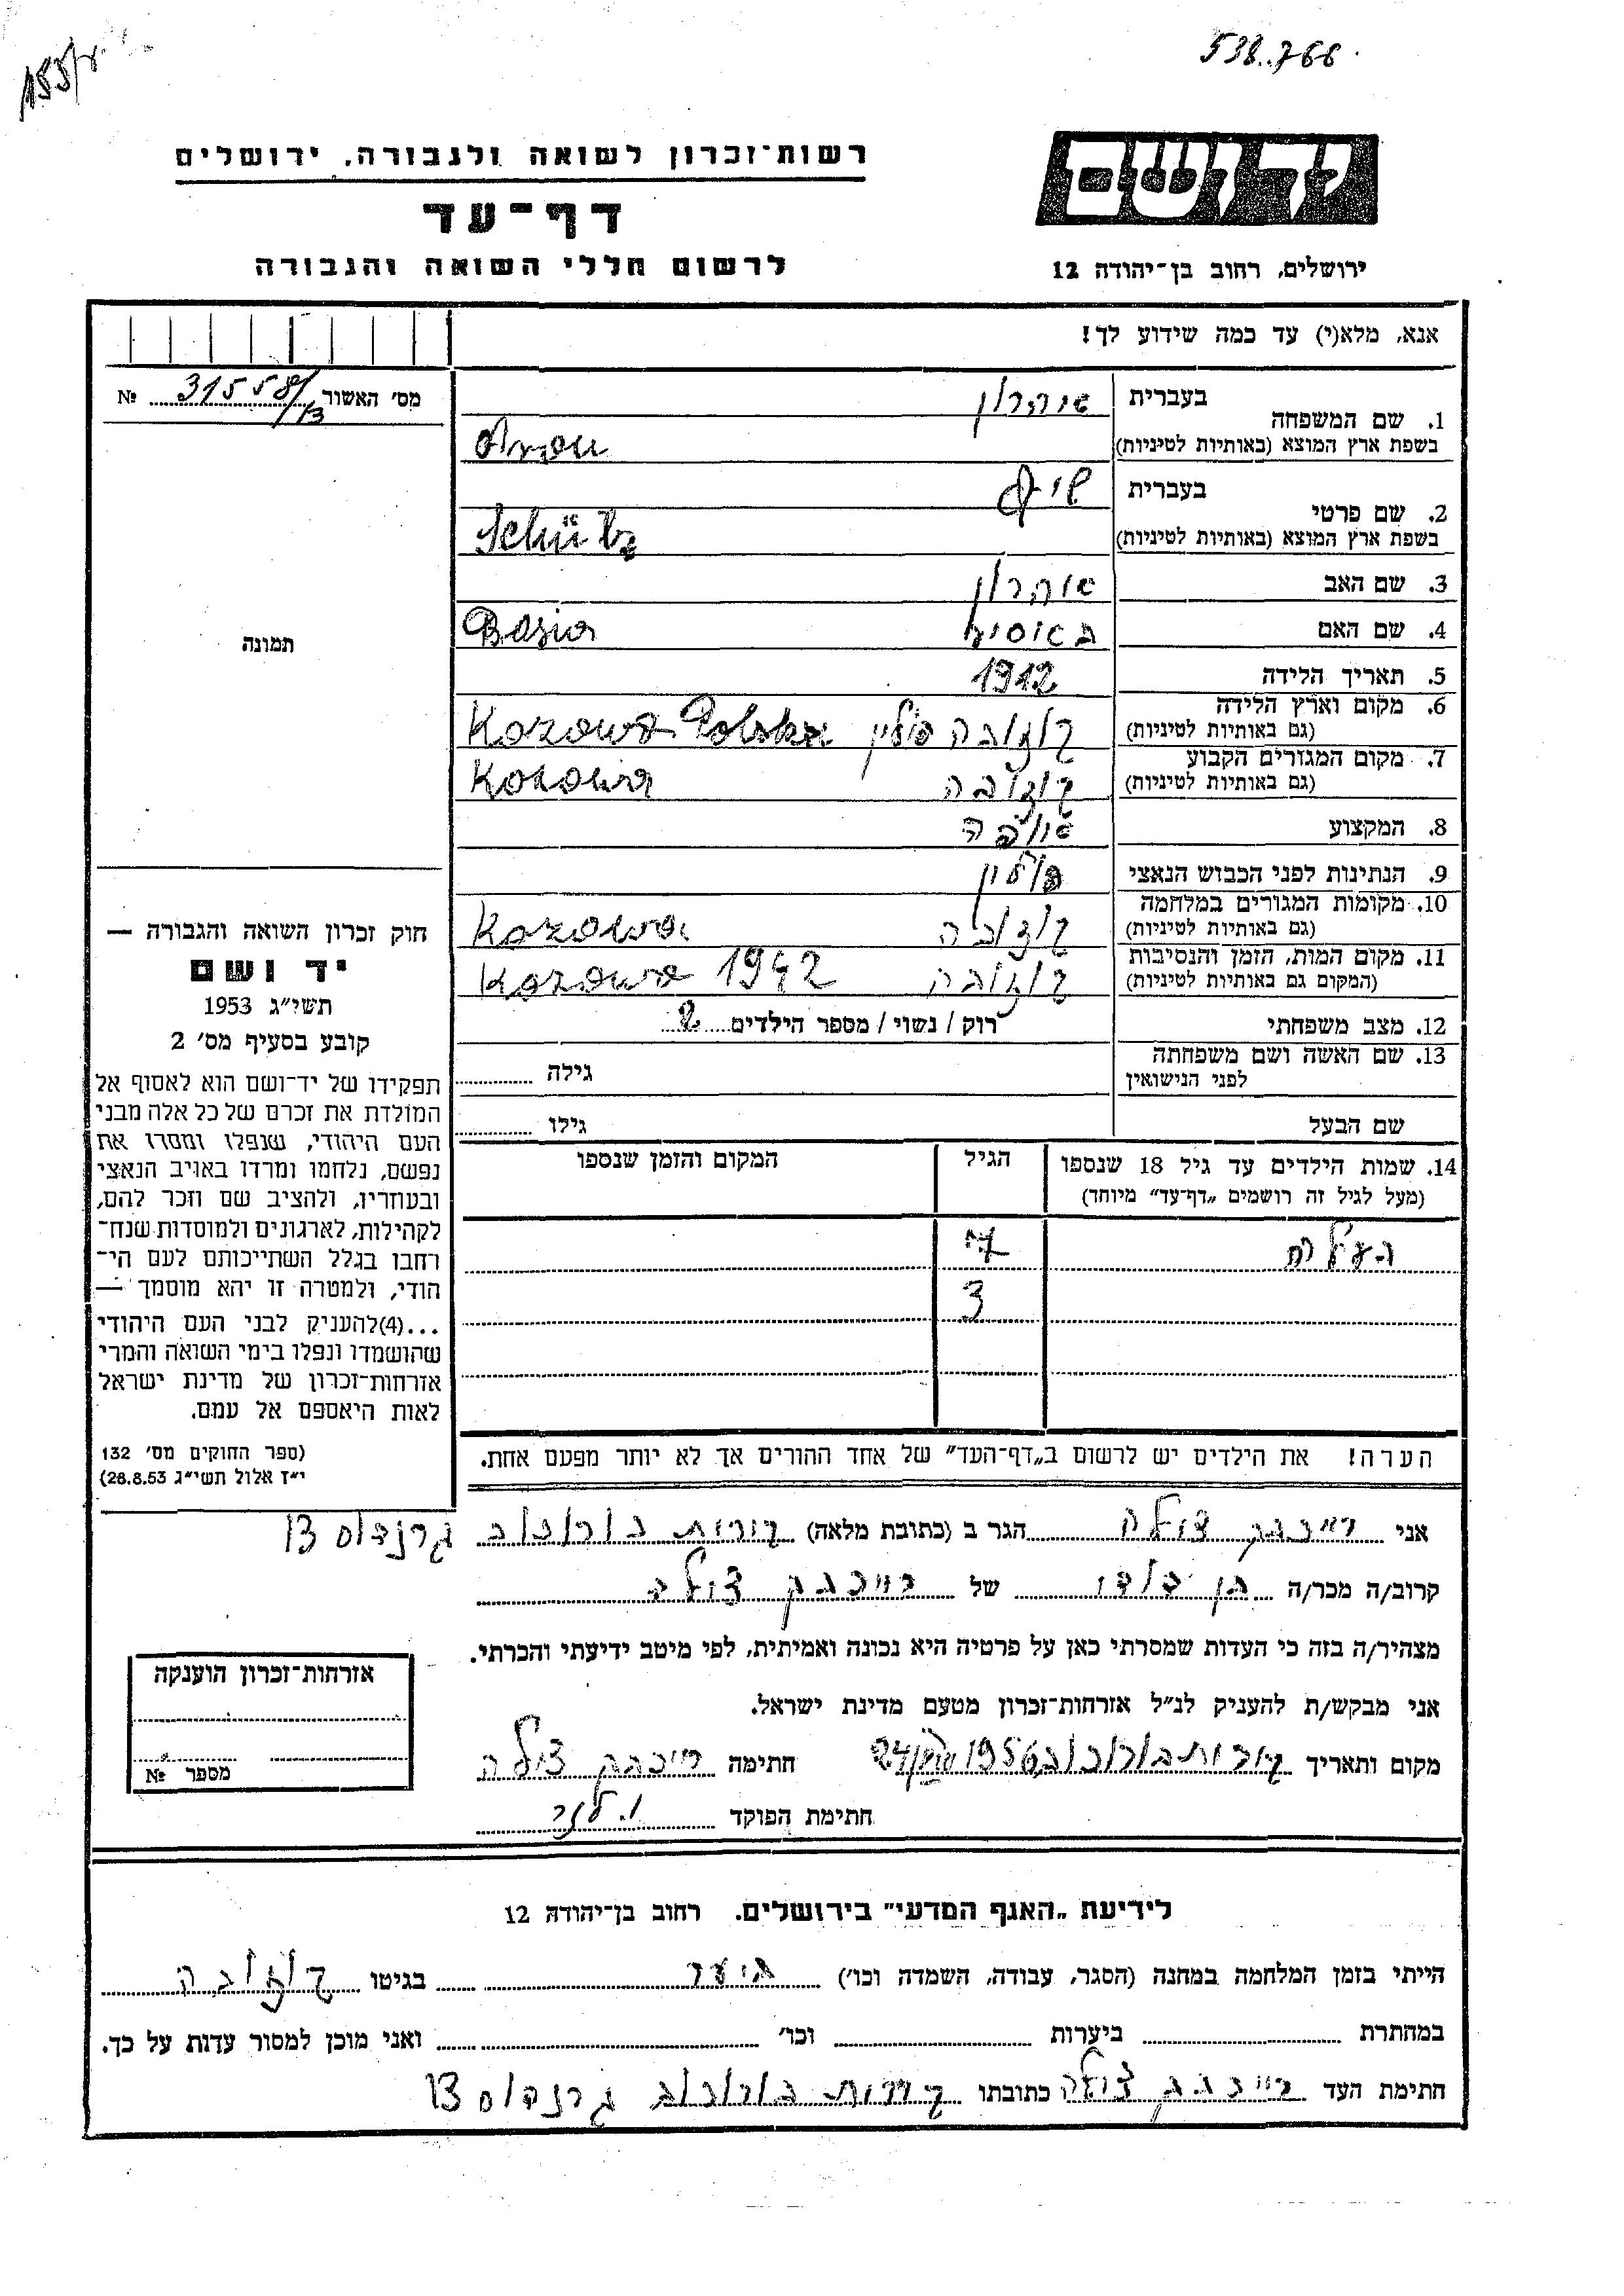 538.766
רשות־זכרון לשואה ולגבורה, ירושלים
דף־עד
לרשום חללי השואה והגבורה
ירושלים, רחוב בן־יהודה 12
אנא, מלא(י) עד כמה שידוע לך!
מס' האשור № 31558/13
1. שם המשפחה
בעברית
בשפת ארץ המוצא (באותיות לטיניות)
2. שם פרטי
בעברית
בשפת ארץ המוצא (באותיות לטיניות) Schütz
3. שם האב
4. שם האם Basia
5. תאריך הלידה 1912
6. מקום וארץ הלידה קוזובה פולין Kozowa Polska
(גם באותיות לטיניות)
7. מקום המגורים הקבוע קוזובה Kozowa
(גם באותיות לטיניות)
8. המקצוע
9. הנתינות לפני הכבוש הנאצי
10. מקומות המגורים במלחמה קוזובה Kozowa
(גם באותיות לטיניות)
11. מקום המות, הזמן והנסיבות קוזובה Kozowa 1942
(המקום גם באותיות לטיניות)
12. מצב משפחתי רוק / נשוי / מספר הילדים 2
13. שם האשה ושם משפחתה
לפני הנישואין
גילה
שם הבעל
גילו
14. שמות הילדים עד גיל 18 שנספו
(מעל לגיל זה רושמים „דף־עד" מיוחד)
הגיל
המקום והזמן שנספו
7
3
הערה! את הילדים יש לרשום ב„דף־העד" של אחד ההורים אך לא יותר מפעם אחת.
תמונה
חוק זכרון השואה והגבורה —
יד ושם
תשי"ג 1953
קובע בסעיף מס' 2
תפקידו של יד־ושם הוא לאסוף אל
המולדת את זכרם של כל אלה מבני
העם היהודי, שנפלו ומסרו את
נפשם, נלחמו ומרדו באויב הנאצי
ובעוזריו, ולהציב שם וזכר להם,
לקהילות, לארגונים ולמוסדות שנח־
רחבו בגלל השתייכותם לעם הי־
הודי, ולמטרה זו יהא מוסמך —
...(4)להעניק לבני העם היהודי
שהושמדו ונפלו בימי השואה והמרי
אזרחות־זכרון של מדינת ישראל
לאות היאספם אל עמם.
(ספר החוקים מס' 132
י"ז אלול תשי"ג 28.8.53)
אני צולה הגר ב (כתובת מלאה) 13
קרוב/ה מכר/ה בן דודו של צולה
מצהיר/ה בזה כי העדות שמסרתי כאן על פרטיה היא נכונה ואמיתית, לפי מיטב ידיעתי והכרתי.
אני מבקש/ת להעניק לנ"ל אזרחות־זכרון מטעם מדינת ישראל.
מקום ותאריך 1956 חתימה צולה
חתימת הפוקד
אזרחות־זכרון הוענקה
מספר №
לידיעת „האגף המדעי" בירושלים. רחוב בן־יהודה 12
הייתי בזמן המלחמה במחנה (הסגר, עבודה, השמדה וכו') ביער בגיטו קוזובה
במחתרת ביערות וכו' ואני מוכן למסור עדות על כך.
חתימת העד צולה כתובתו 13